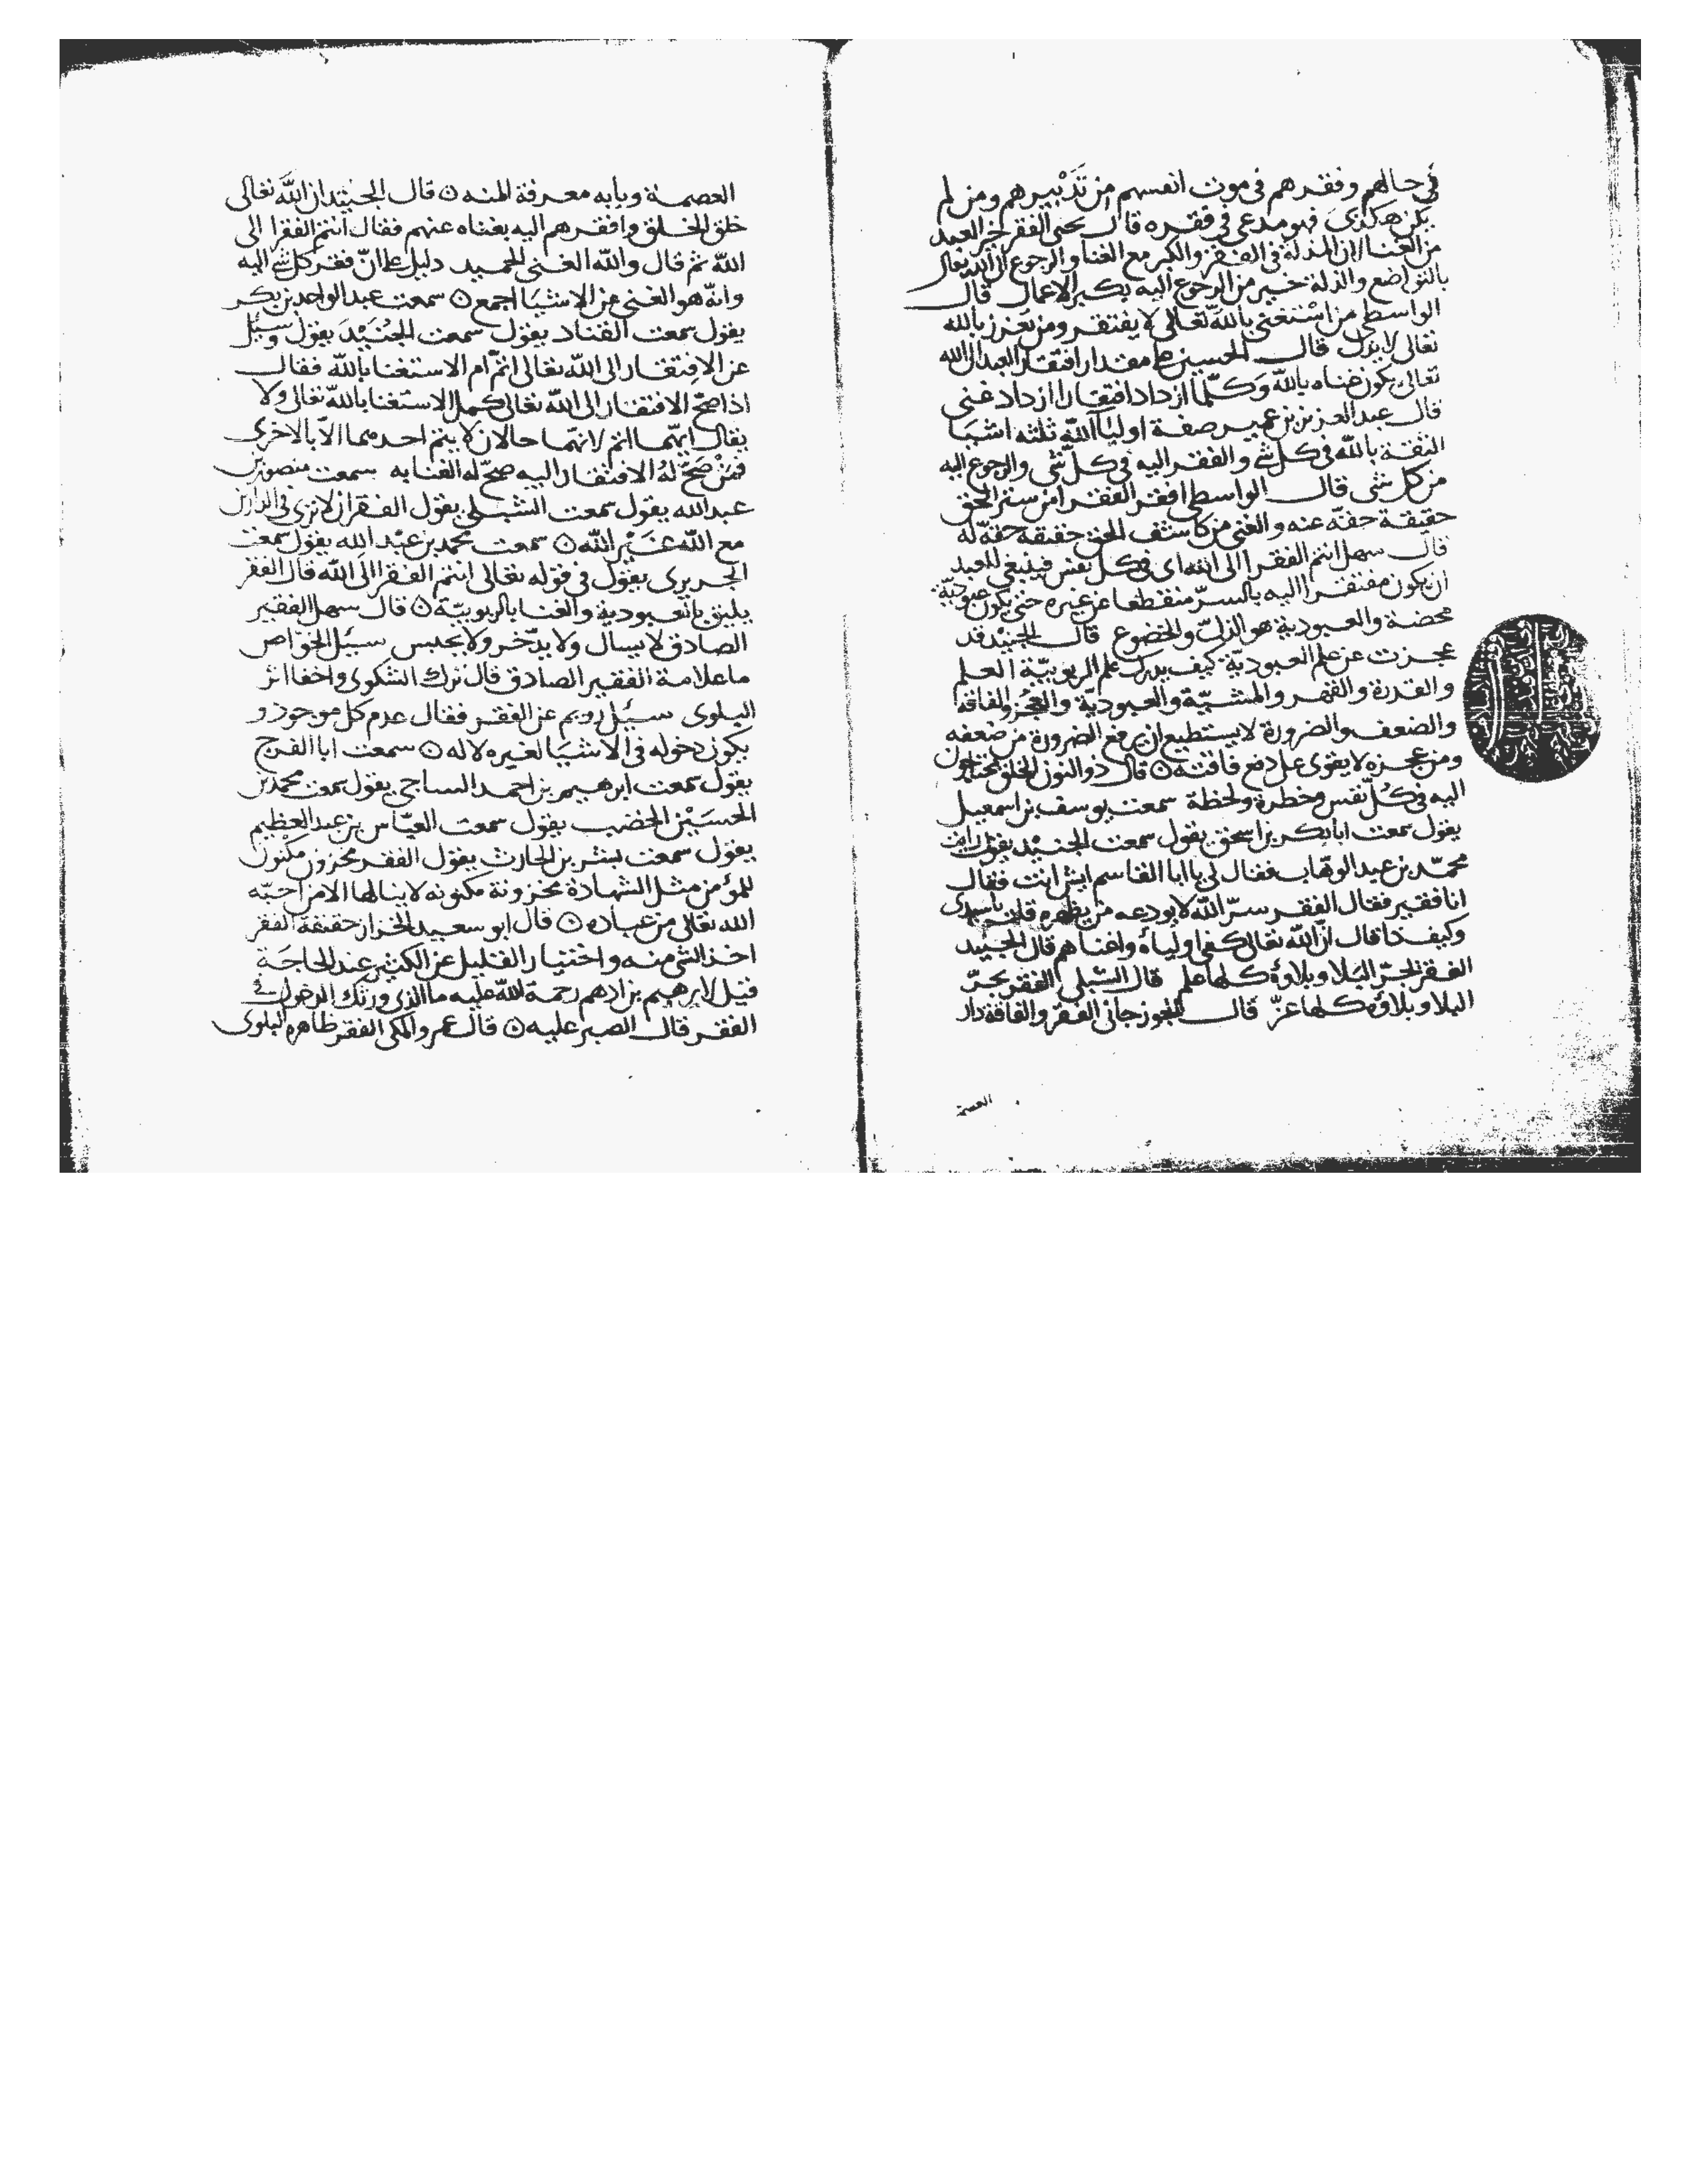 في حالهم وفقرهم في موت انفسهم من تدبيرهم ومن لم
يكن هكذى فهو مدعى في فقره قال يحيى الفقر خير للعبد
من الغنا لان المذلة في الفقر والكبر مع الغنا والرجوع الى الله تعالى
بالتواضع والذلة خير من الرجوع اليه بكبر الاعمال قال
الواسطى من استغنى بالله تعالى لا يفتقر ومن تعزز بالله
تعالى لا يذل قال الحسين على مقدار افتقار العبد الى الله
تعالى يكون غناه بالله وكلما ازداد افتقارا ازداد غنى
قال عبد العزيز بن عمير صفة اوليآ الله ثلثه اشيا
الثقة بالله في كل شئ والفقر اليه في كل شئ والرجوع اليه
من كل شئ قال الواسطى افقر الفقرا من ستر الحق
حقيقة حقه عنه والغنى من كاشف الحق حقيقة حقه له
قال سهل انتم الفقرا الى الله اى في كل نفس فينبغي للعبد
ان يكون مفتقرا اليه بالسر منقطعا عن غيره حتى يكون عبوديته
محضة والعبودية هو الذل والخضوع قال الجنيد قد
عجزت عن علم العبودية كيف يدرك علم الربوبية العلم
والقدرة والقهر والمشية والعبودية والعجز والفاقه
والضعف والضرورة لا يستطيع ان يرفع الضرورة من ضعفه
ومن عجزه لا يقوى على دفع فاقته ۞ قال ذو النون الخلق محتاجون
اليه في كل نفس وخطرة ولحظة سمعت يوسف بن اسمعيل
يقول سمعت ابا بكر بن اسحق يقول سمعت الجنيد يقول رايت
محمد بن عبد الوهاب فقال لي يا ابا القاسم ايش انت فقال
انا فقير فقال الفقر سر الله لا يودعه من يظهره قلت يا سيدى
وكيف ذا قال ان الله تعالى كفى اولياءه واغناهم قال الجنيد
الفقر بحر البلا وبلاؤه كلها علم قال الشبلى الفقر بحر
البلا وبلاؤه كلها عز قال الجوزجانى الفقر والفاقة دار
العصمة
العصمة وبابه معرفة المنه ۞ قال الجنيد ان الله تعالى
خلق الخلق وافقرهم اليه بغناه عنهم فقال انتم الفقرا الى
الله ثم قال والله الغنى الحميد دليل على ان فقر كل شئ اليه
وانه هو الغنى عن الاشيا اجمع ۞ سمعت عبد الواحد بن بكر
يقول سمعت القناد يقول سمعت الجنيد يقول وسئل
عن الافتقار الى الله تعالى اتم ام الاستغنا بالله فقال
اذا صح الافتقار الى الله تعالى كمل الاستغنا بالله تعالى ولا
يقال ايهما اتم لانهما حالان لا يتم احدهما الا بالاخرى
فمن صح له الافتقار اليه صح له الغنا به سمعت منصور بن
عبد الله يقول سمعت الشبلى يقول الفقر ان لا ترى في الدارين
مع الله غير الله ۞ سمعت محمد بن عبد الله يقول سمعت
الجريرى يقول في قوله تعالى انتم الفقرا الى الله قال الفقر
يليق بالعبودية والغنا بالربوبية ۞ قال سهل الفقير
الصادق لا يسال ولا يدخر ولا يحبس سئل الخواص
ما علامة الفقير الصادق قال ترك الشكوى واخفا اثر
البلوى سئل رويم عن الفقر فقال عدم كل موجود و
يكون دخوله في الاشيا لغيره لا له ۞ سمعت ابا الفرج
يقول سمعت ابرهيم بن احمد الساجى يقول سمعت محمد بن
الحسين الخضيب يقول سمعت العباس بن عبد العظيم
يقول سمعت بشر بن الحارث يقول الفقر مخزون مكنون
للمؤمن مثل الشهادة مخزونة مكنونه لا ينالها الا من احبه
الله تعالى من عباده ۞ قال ابو سعيد الخراز حقيقة الفقر
اخذ الشى منه واختيار القليل عن الكثير عند الحاجة
قيل لابرهيم بن ادهم رحمة الله عليه ما الذى ورثك الدخول في
الفقر قال الصبر عليه ۞ قال عمرو المكى الفقر ظاهره البلوى